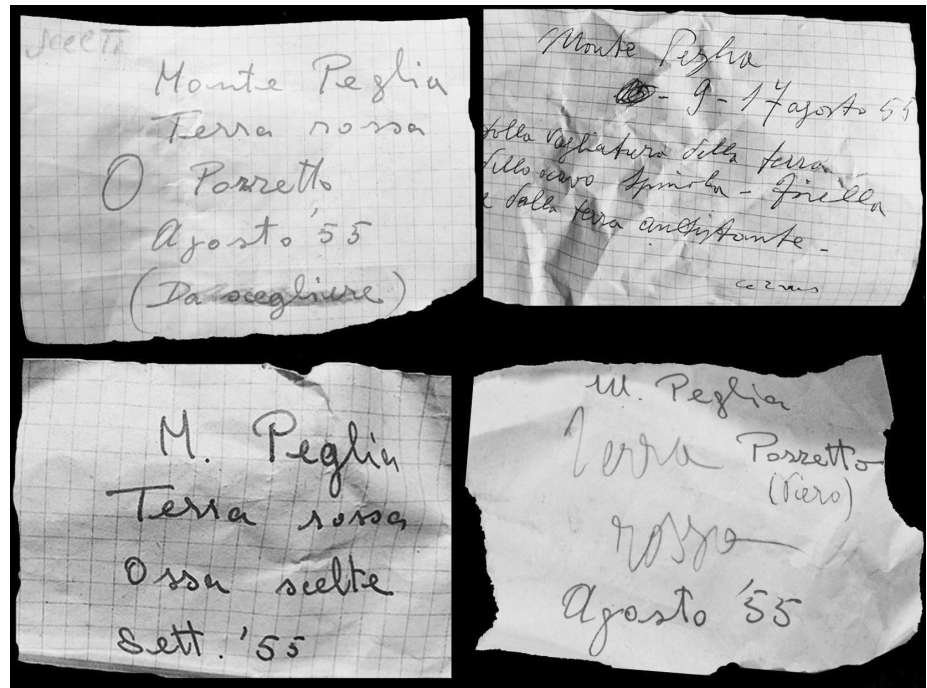 scelti
Monte Peglia
Terra rossa
O Pozzetto
Agosto '55
(Da scegliere)
Monte Peglia
- 9 - 17 agosto 55
dalla vagliatura della terra
dello scavo Spinola - Fisella
e dalla terra antistante -
M. Peglia
Terra rossa
Ossa scelte
Sett. '55
M. Peglia
Terra Pozzetto
(Piero)
rossa
Agosto '55